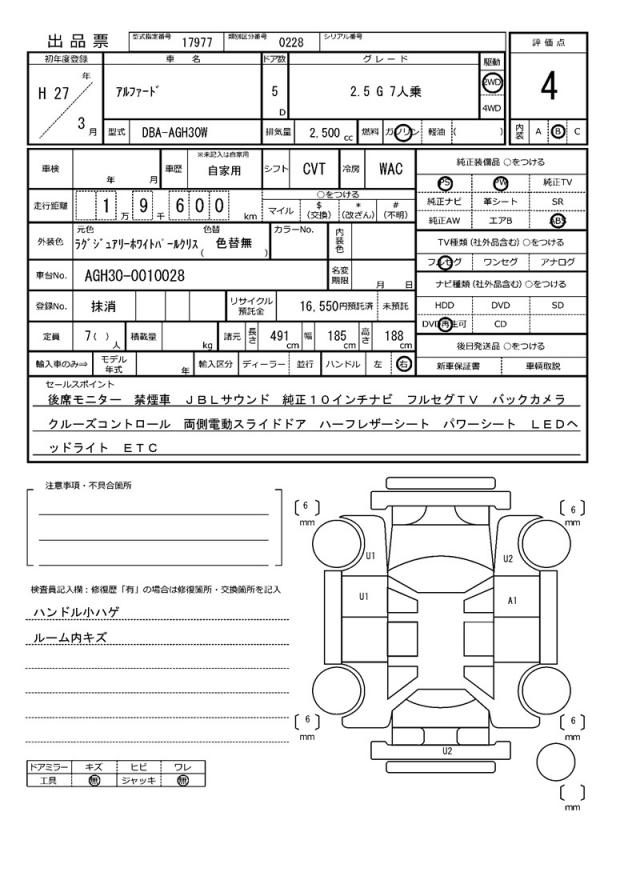 出 品 票 型式指定番号 17977 類別区分番号 0228 シリアル番号
評 価 点
初年度登録 車 名 ドア数 グ レ ー ド 駆動
H 27 年 3 月 アルファード 5 D 2.5 G 7人乗 2WD 4
4WD
型式 DBA-AGH30W 排気量 2,500 cc 燃料 ガソリン 軽油 ( ) 内装 A B C
車検 年 月 車歴 ※未記入は自家用 自家用 シフト CVT 冷房 WAC
純正装備品 ○をつける
PS PW 純正TV
純正ナビ 革シート SR
純正AW エアB ABS
走行距離 1 万 9 千 6 0 0 km
○をつける
マイル $ (交換) * (改ざん) # (不明)
外装色 元色 ラグジュアリーホワイトパールクリス 色替 ( 色替無 ) カラーNo. 内装色
TV種類 (社外品含む) ○をつける
フルセグ ワンセグ アナログ
車台No. AGH30-0010028 名変期限 月 日
ナビ種類 (社外品含む) ○をつける
HDD DVD SD
DVD再生可 CD
登録No. 抹消 リサイクル預託金 16,550円預託済 未預託
定員 7 ( ) 人 積載量 kg 諸元 長さ 491 cm 幅 185 cm 高さ 188 cm
後日発送品 ○をつける
新車保証書 車輌取説
輸入車のみ⇒ モデル年式 年 輸入区分 ディーラー 並行 ハンドル 左 右
セールスポイント
後席モニター 禁煙車 JBLサウンド 純正10インチナビ フルセグTV バックカメラ
クルーズコントロール 両側電動スライドドア ハーフレザーシート パワーシート LEDヘ
ッドライト ETC
注意事項・不具合箇所
検査員記入欄：修復歴「有」の場合は修復箇所・交換箇所を記入
ハンドル小ハゲ
ルーム内キズ
ドアミラー キズ ヒビ ワレ
工具 無 ジャッキ 無
6 mm
6 mm
U1
U2
U1
A1
6 mm
6 mm
U2
mm